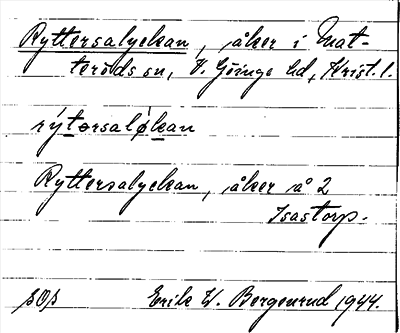 Ryttersalyckan, åker i Mat-
teröds sn, V. Göinge hd, Krist. l.
rýtərsaløkan
Ryttersalyckan, åker å 2
Isastorp.
sOs Erik W. Bergenrud 1944.